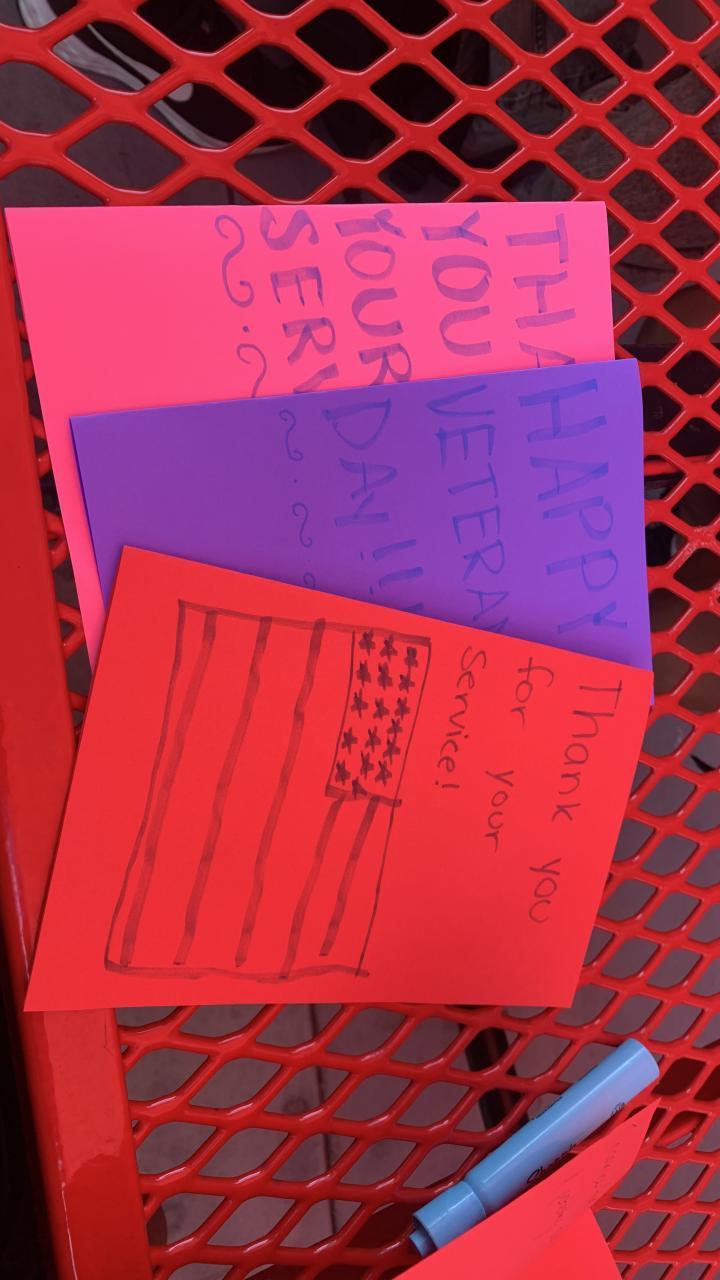 THA
YOU
YOUR
SERV
HAPPY
VETERAN
DAY!!!
Thank you
for your
Service!